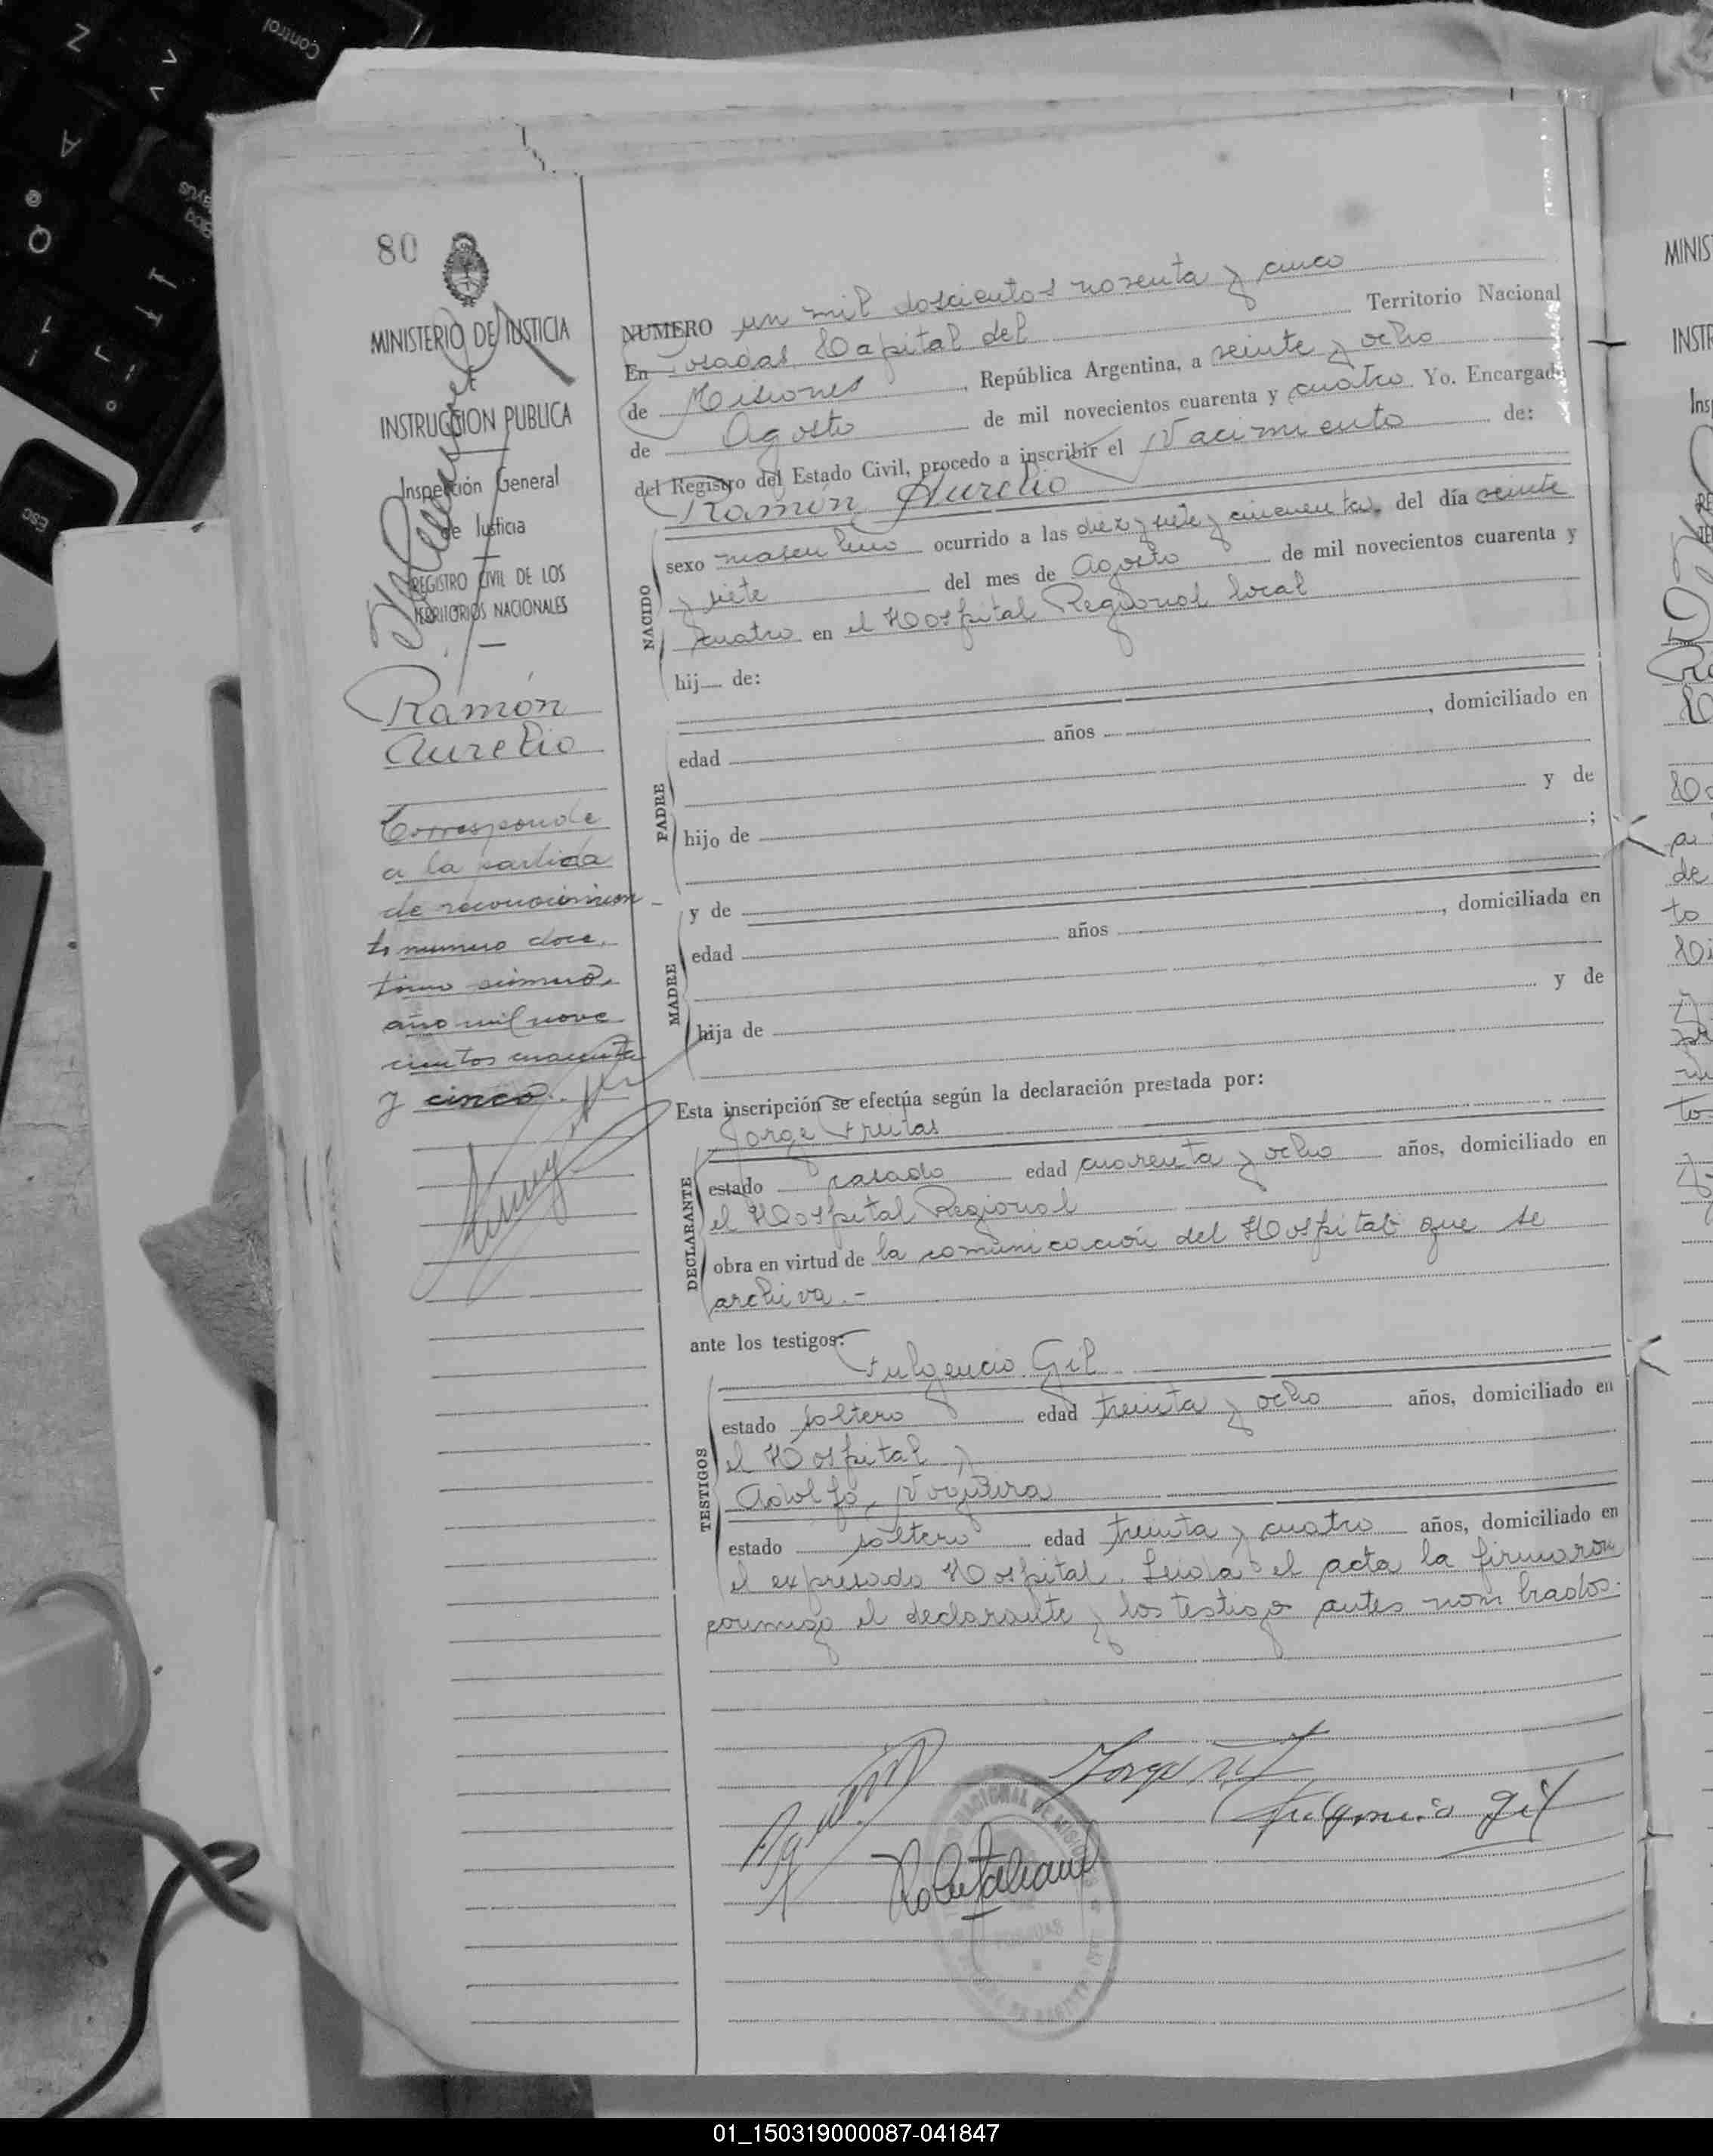 80
MINISTERIO DE JUSTICIA
E
INSTRUCCION PUBLICA
Inspección General
de Justicia
REGISTRO CIVIL DE LOS
TERRITORIOS NACIONALES
Ramón
Aurelio
Corresponde
a la partida
de reconocimien-
to numero doce,
tomo
año mil nove
cientos cuarenta
y cinco.
NUMERO un mil doscientos noventa y cinco
En Posadas Capital del Territorio Nacional
de Misiones, República Argentina, a veinte y ocho
de Agosto de mil novecientos cuarenta y cuatro Yo. Encargado
del Registro del Estado Civil, procedo a inscribir el Nacimiento de:
Ramón Aurelio
NACIDO
sexo masculino ocurrido a las diez y siete y cincuenta. del día veinte
y siete del mes de Agosto de mil novecientos cuarenta y
cuatro en el Hospital Regional local
hij de:
PADRE
edad años , domiciliado en
hijo de y de
;
MADRE
y de
edad años , domiciliada en
hija de y de
Esta inscripción se efectúa según la declaración prestada por:
Jorge Freitas
DECLARANTE
estado casado edad cuarenta y ocho años, domiciliado en
el Hospital Regional
obra en virtud de la comunicación del Hospital que se
archiva.-
ante los testigos:
Fulgencio Gil
TESTIGOS
estado soltero edad treinta y ocho años, domiciliado en
el Hospital y
Adolfo
estado soltero edad treinta y cuatro años, domiciliado en
el expresado Hospital. Leida el acta la firmaron
conmigo el declarante y los testigo antes nombrados.
Fulgencio Gil
MINIS
INSTR
Insp
Control
Esc
01_150319000087-041847